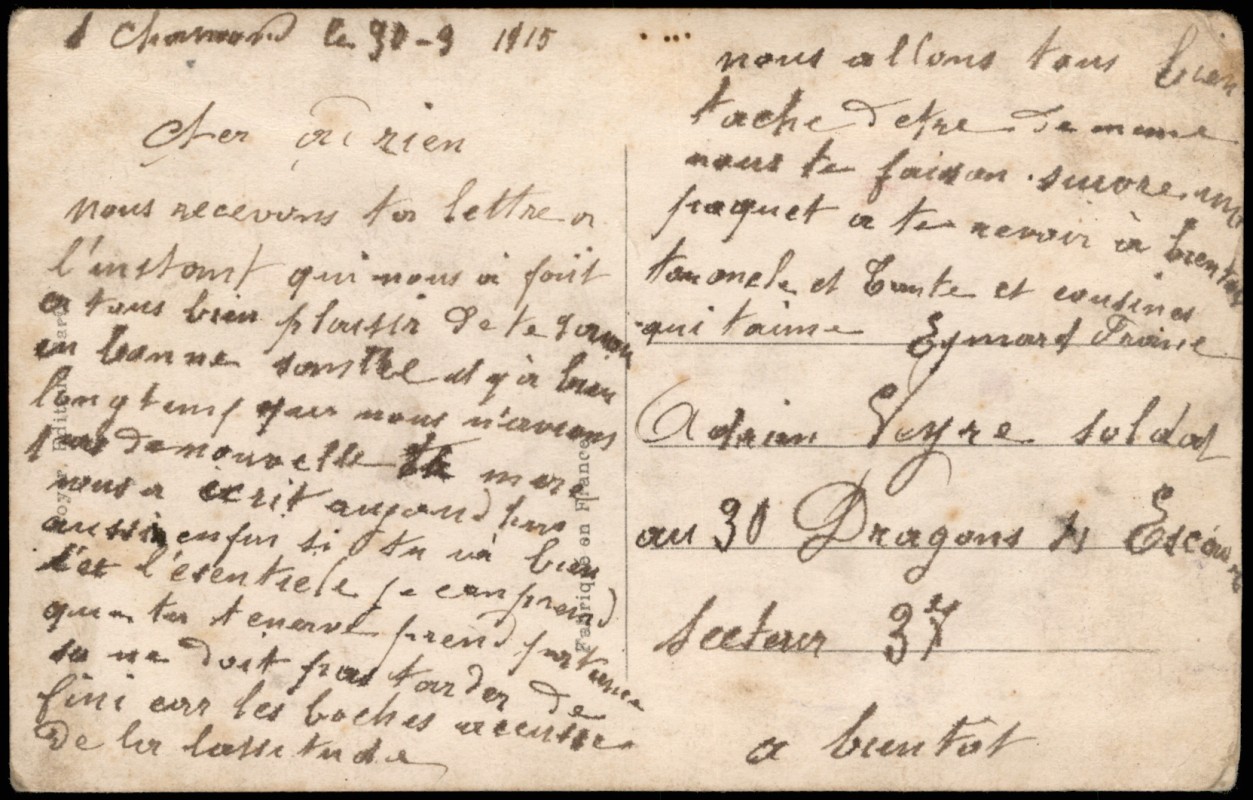 St Chamond le 30-9 1915
Cher Adrien
nous recevons ta lettre a
l'instant qui nous à fait
a tous bien plaisir de te savoir
en bonne santée et y à bien
longtemp que nous n'avions
pas de nouvelle ta mere
nous a écrit aujourd hui
aussi enfin si tu và bien
s'et l'esentiele je comprend
que tu t enerve prend patience
sa ne doit pas tarder de
fini car les boches accusse
de la lassitude
nous allons tous bien
tache d'etre de meme
nous te faison suivre un
paquet a te revoir à bientot
ton oncle et Tante et cousines
qui t aime Eymard France
Adrien Veyre soldat
au 30 Dragons Escou
Secteur 37
a bientot
Fabriqué en France
Editeur